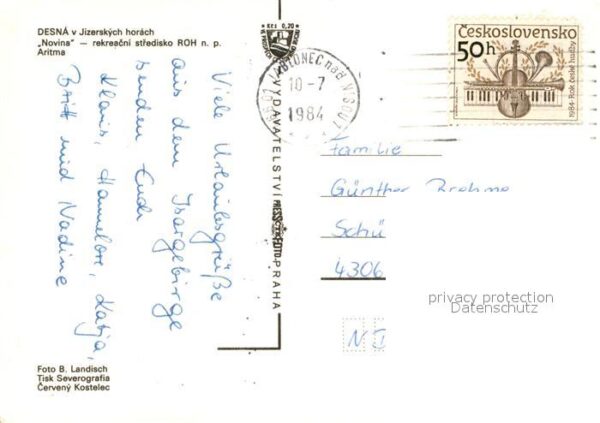 DESNÁ v Jizerských horách
„Novina" — rekreační středisko ROH n. p.
Aritma
Kčs 0,20
Viele Urlaubsgrüße
aus dem Isargebirge
senden Euch
Klaus, Hannelore, Katja,
Britt und Nadine
Foto B. Landisch
Tisk Severografia
Červený Kostelec
VYDAVATELSTVÍ PRESSFOTO PRAHA
JABLONEC nad NISOU 1
10-7
1984
Československo
50h
1984-Rok české hudby
Familie
Günther Brehme
Schü
4306
privacy protection
Datenschutz